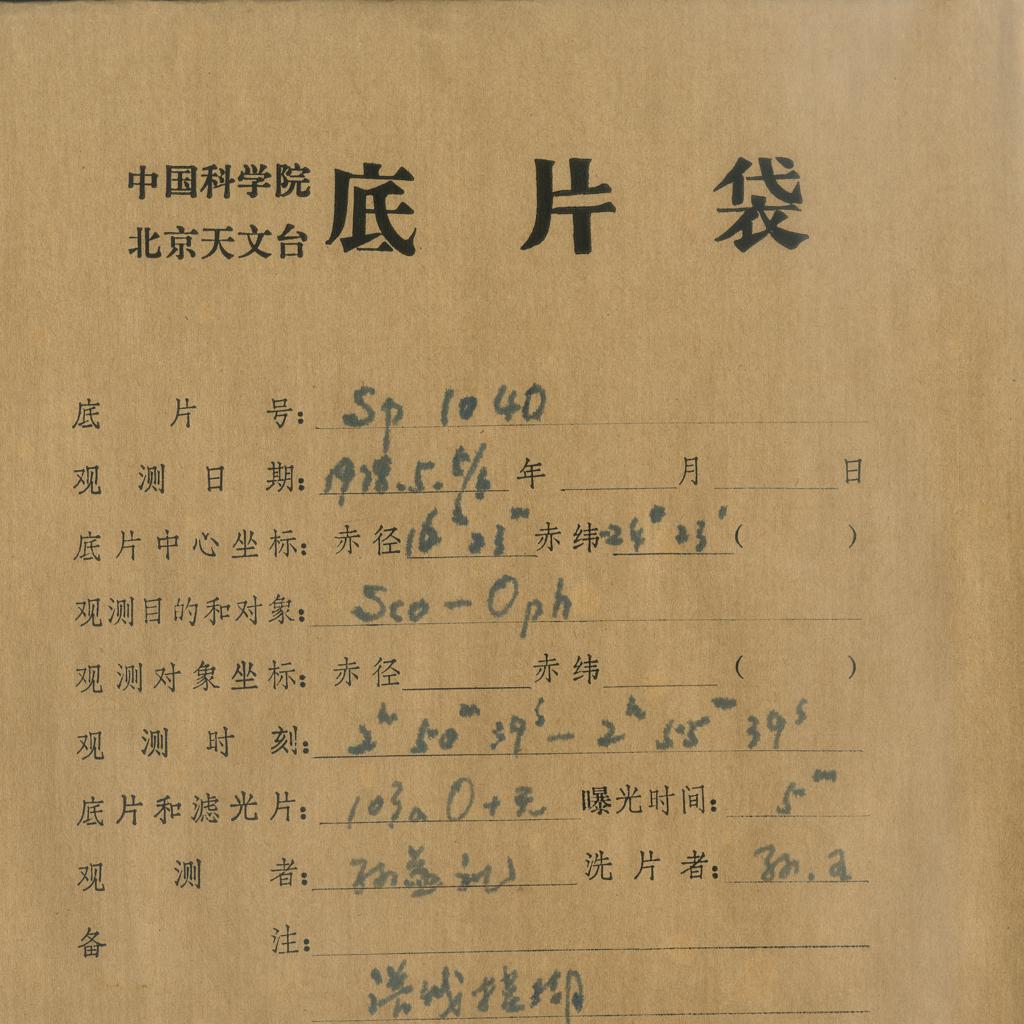 中国科学院
北京天文台
底片袋
底片号: Sp 1040
观测日期: 1978.5.5/6 年 月 日
底片中心坐标: 赤径 16h 23m 赤纬 -24° 23' ( )
观测目的和对象: Sco-Oph
观测对象坐标: 赤径 赤纬 ( )
观测时刻: 2h 50m 39s - 2h 55m 39s
底片和滤光片: 103aO+无 曝光时间: 5m
观测者: 孙益礼 洗片者: 孙.王
备注:
谱线模糊